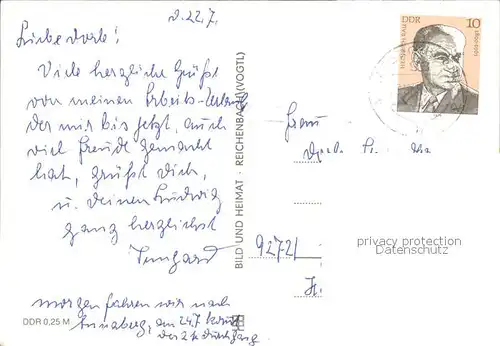 d. 22.7.
Liebe Dorle!
Viele herzliche Grüße
von meinem Arbeits-Urlaub
der mir bis jetzt, auch
viel Freude gemacht
hat, grüßt Dich,
u. Deinen Ludwig
ganz herzlichst
Irmgard
morgen fahren wir nach
Annaberg, am 24.7. kommt
der 2te Durchgang
DDR 0,25 M
BILD UND HEIMAT · REICHENBACH (VOGTL)
DDR 10
Frau
9272
privacy protection
Datenschutz